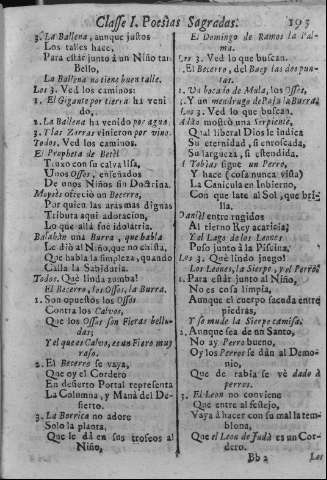 Classe I. Poesias Sagradas. 195
3. La Ballena, aunque justos
Los talles hace,
Para estàr junto à un Niño tan
Bello,
La Ballena no tiene buen talle.
Los 3. Ved los caminos:
1. El Gigante por tierra hà venido,
2. La Ballena hà venido por agua.
3. Y las Zorras vinieron por vino.
Todos. Ved los caminos.
El Propheta de Bethèl
Truxo con su calva lisa,
Unos Ossos, enseñados
De unos Niños sin Doctrina.
Moysès ofreciò un Becerro,
Por quien las aras mas dignas
Tributa aqui adoracion,
Lo que allà fue idolatria.
Balahàn una Burra, que habla
Le diò al Niño, que no chista,
Que habla la simpleza, quando
Calla la Sabiduria.
Todos. Què linda zumba!
El Becerro, los Ossos, la Burra.
1. Son opuestos los Ossos
Contra los Calvos,
Que los Ossos son Fieras belludas;
Y el que es Calvo, es un Fiero muy
raso.
2. El Becerro se vaya,
Que oy el Cordero
En desierto Portal representa
La Columna, y Manà del Desierto.
3. La Borrica no adore
Solo la planta,
Que le dà en sus troseos al
Niño,
El Domingo de Ramos la Palma.
Los 3. Ved lo que buscan.
1. El Becerro, del Buey las dos puntas.
2. Un bocado de Mula, los Ossos,
3. Y un mendrugo de Paja la Burra.
Los 3. Ved lo que buscan.
Adàn mostrò una Serpiente,
Qual liberal Dios le indica
Su eternidad, si enroscada,
Su largueza, si estendida.
Tobias sigue un Perro,
Y hace (cosa nunca vista)
La Canicula en Inbierno,
Con que late al Sol, que brilla.
Danièl entre rugidos
Al tierno Rey acaricia;
Y al Lago de los Leones
Puso junto à la Piscina.
Los 3. Què lindo juego!
Los Leones, la Sierpe, y el Perro.
1. Para estàr junto al Niño,
No es cosa limpia,
Aunque el cuerpo sacuda entre
piedras,
Y se mude la Sierpe camisa.
2. Aunque sea de un Santo,
No ay Perro bueno,
Oy los Perros se dàn al Demonio,
Que de rabia se vè dado à
perros.
3. El Leon no conviene
Que entre al festejo,
Vaya à hacer con su mal la temblona,
Que el Leon de Judà es un Cordero.
Bb 2 Los